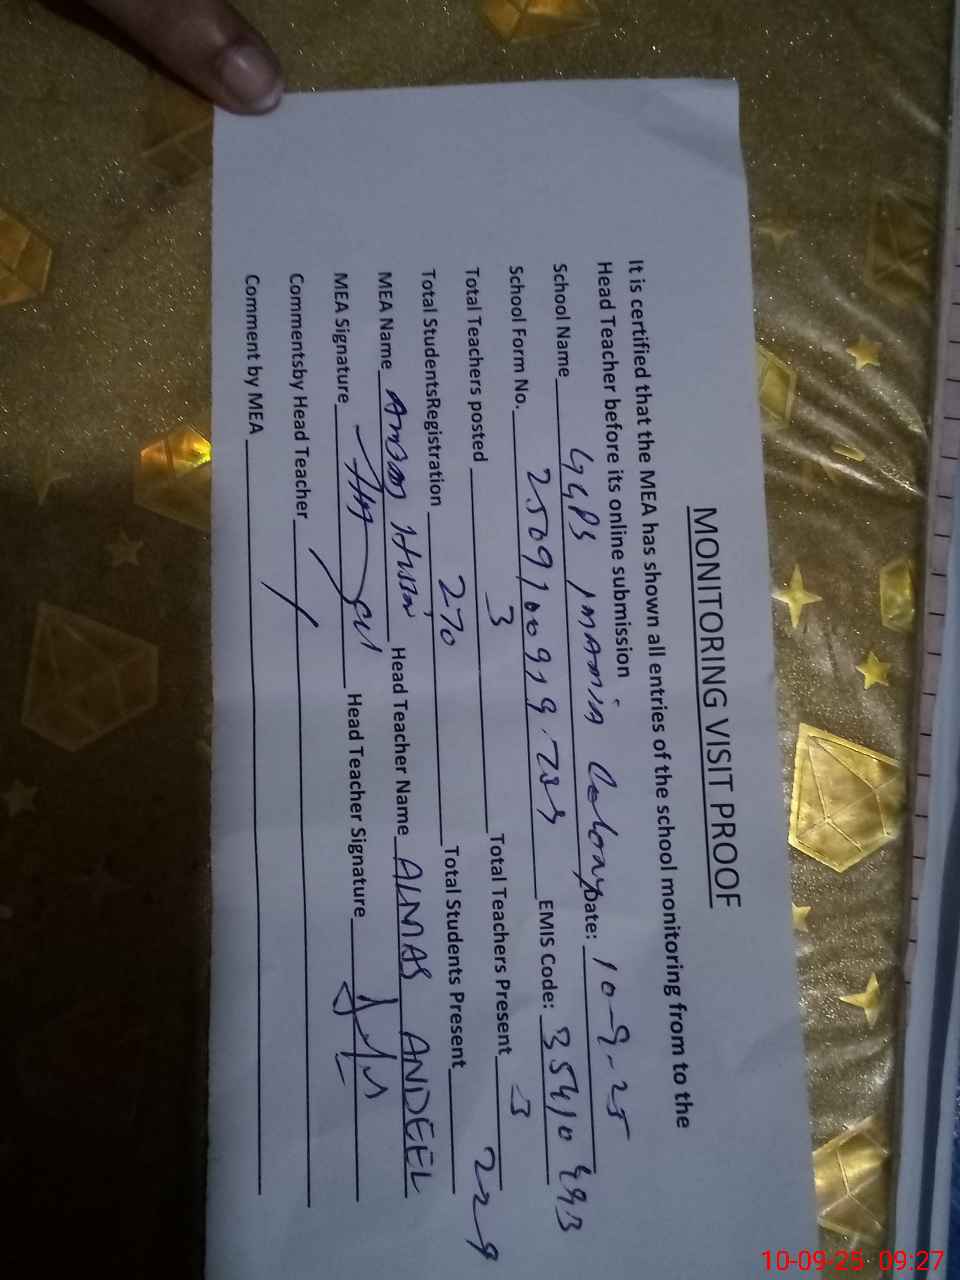 MONITORING VISIT PROOF
It is certified that the MEA has shown all entries of the school monitoring from to the
Head Teacher before its online submission
School Name GGPS IMAMIA Colony Date: 10-9-25
School Form No. EMIS Code: 35410493
Total Teachers posted 3 Total Teachers Present 3
Total StudentsRegistration 270 Total Students Present 229
MEA Name Head Teacher Name ALMAS ANDEEL
MEA Signature Head Teacher Signature
Commentsby Head Teacher
Comment by MEA
10-09-25 09:27